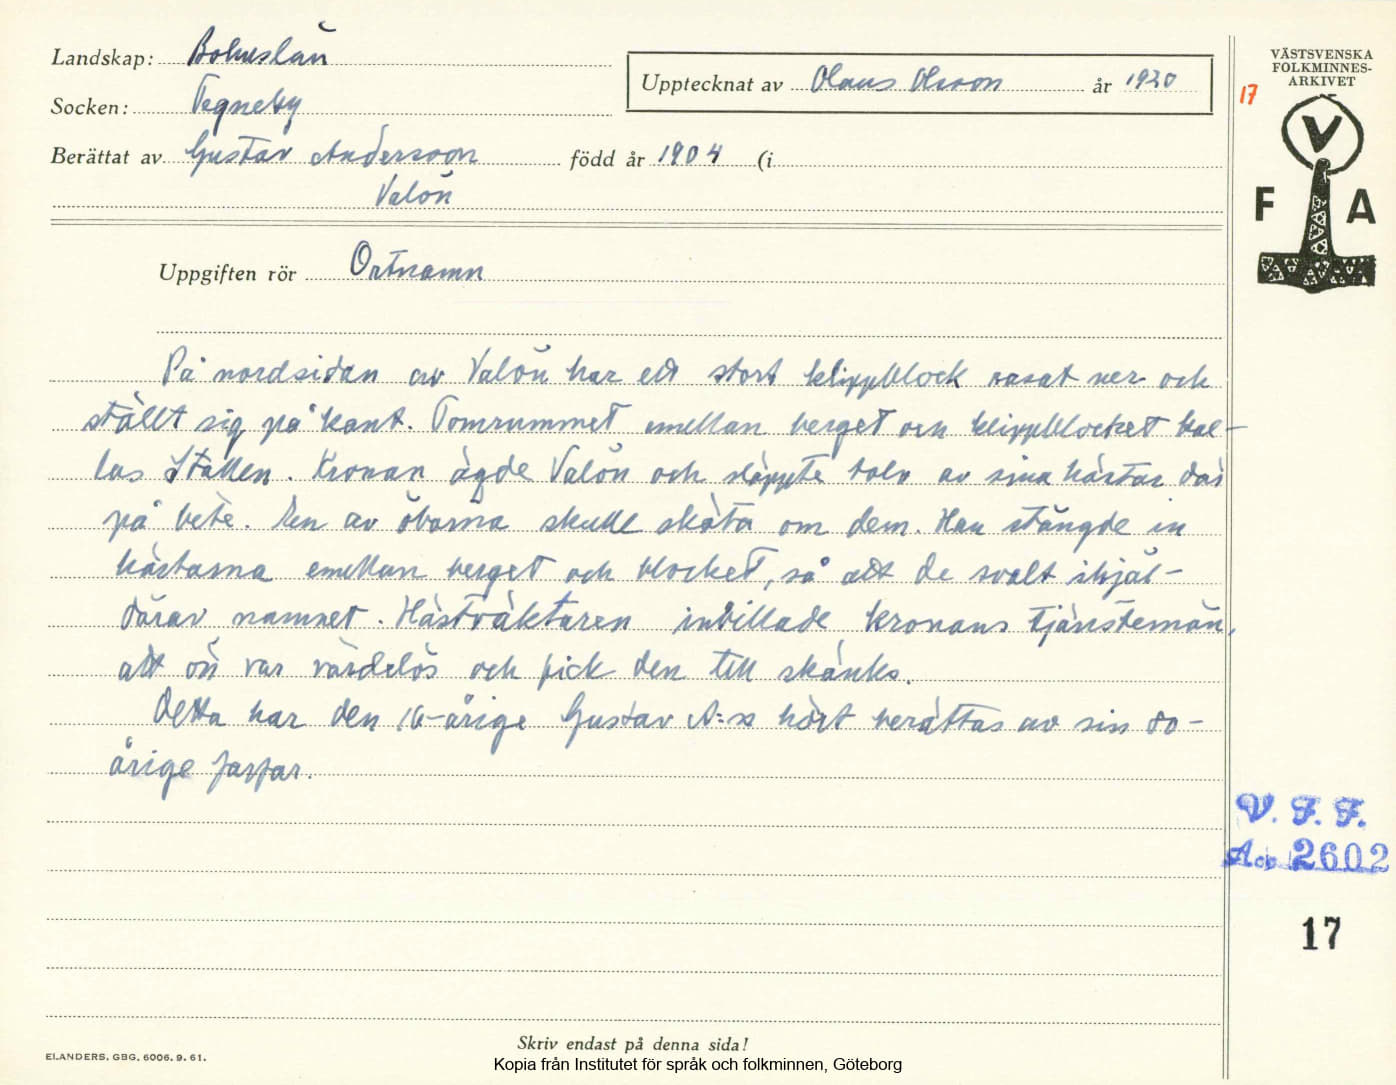 Landskap: Bohuslän
Socken: Tegneby
Berättat av Gustav Andersson född år 1904 (i
Valön
Upptecknat av Olaus Olsson år 1920
VÄSTSVENSKA
FOLKMINNES-
ARKIVET
17
V
F A
Uppgiften rör Ortnamn
På nordsidan av Valön har ett stort klippblock rasat ner och
ställt sig på kant. Tomrummet emellan berget och klippblocket kal-
las Stallen. Kronan ägde Valön och släppte tolv av sina hästar där
på bete. En av öborna skulle sköta om dem. Han stängde in
hästarna emellan berget och blocket, så att de svalt ihjäl -
därav namnet. Hästväktaren inbillade kronans tjänstemän,
att ön var värdelös och fick den till skänks.
Detta har den 16-årige Gustav A:n hört berättas av sin 80-
årige farfar.
V. F. F.
Acc 2602
17
Skriv endast på denna sida!
ELANDERS. GBG. 6006. 9. 61.
Kopia från Institutet för språk och folkminnen, Göteborg